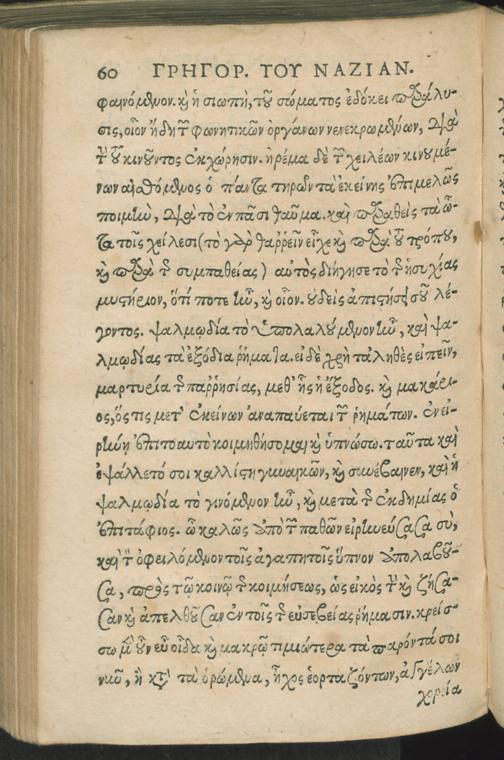 60 ΓΡΗΓΟΡ. ΤΟΥ ΝΑΖΙΑΝ.
φαινόμενον. καὶ ἡ σιωπὴ, τοῦ σώματος ἐδόκει παράλυ-
σις, οἷον ἤδη τῶν φωνητικῶν ὀργάνων νενεκρωμένων, διὰ
τὴν τοῦ κινοῦντος ἐκχώρησιν. ἠρέμα δὲ τῶν χειλέων κινουμέ-
νων αἰσθόμενος ὁ πάντα τηρῶν τὰ ἐκείνης ἐπιμελῶς
ποιμὴν, διὰ τὸ ἐν πᾶσι θαῦμα. καὶ παραθεὶς τὰ ὦ-
τα τοῖς χείλεσι (τὸ γὰρ θαῤῥεῖν εἶχε καὶ παρὰ τοῦ τρόπου,
καὶ παρὰ τῆς συμπαθείας) αὐτὸς διήγησε τὸ τῆς ἡσυχίας
μυστήριον, ὅτί ποτε ἦν, καὶ οἷον. οὐδεὶς ἀπιστήσει σοῦ λέ-
γοντος. ψαλμῳδία τὸ ὑπολαλούμενον ἦν, καὶ ψα-
λμῳδίας τὰ ἐξόδια ῥήματα. εἰ δὲ χρὴ τἀληθὲς εἰπεῖν,
μαρτυρία τῆς παῤῥησίας, μεθ' ἧς ἡ ἔξοδος. καὶ μακάρι-
ος, ὅς τις μετ' ἐκείνων ἀναπαύεται τῶν ῥημάτων. ἐν εἰ-
ρήνῃ ἐπιτοαυτὸ κοιμηθήσομαι καὶ ὑπνώσω. ταῦτα καὶ
ἐψάλλετό σοι καλλίστη γυναικῶν, καὶ συνέβαινεν, καὶ ἡ
ψαλμῳδία τὸ γινόμενον ἦν, καὶ μετὰ τῆς ἐκδημίας ὁ
ἐπιτάφιος. ὦ καλῶς ἀπὸ τῶν παθῶν εἰρηνεύσασα σὺ,
καὶ τὸν ὀφειλόμενον τοῖς ἀγαπητοῖς ὕπνον ὑπολαβοῦ-
σα, πρὸς τῷ κοινῷ τῆς κοιμήσεως, ὡς εἰκὸς τὴν καὶ ζήσα-
σαν καὶ ἀπελθοῦσαν ἐν τοῖς τῆς εὐσεβείας ῥήμασιν. κρείσ-
σω μὲν οὖν εὖ οἶδα καὶ μακρῷ τιμιώτερα τὰ παρόντά σοι
νῦν, ἢ κατὰ τὰ ὁρώμενα, ἦχος ἑορταζόντων, ἀγγέλων
χορεία